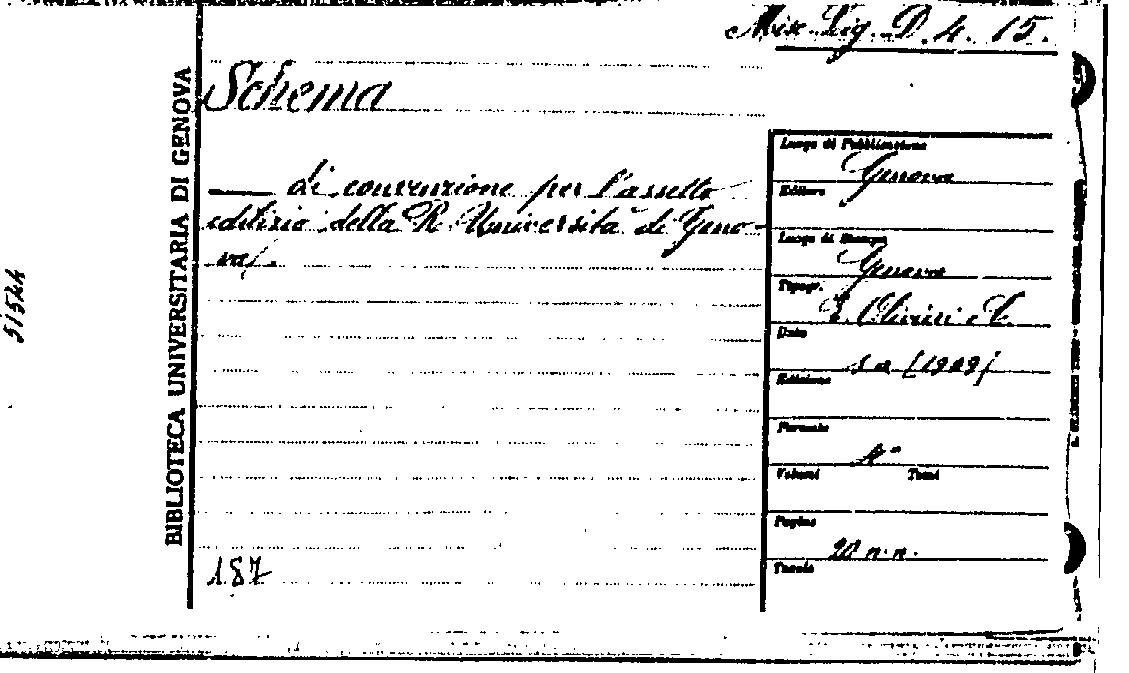 Misc. Lig. D. 4. 15.
Schema
— di convenzione per l'assetto
edilizio della R. Università di Geno-
va/.
187
BIBLIOTECA UNIVERSITARIA DI GENOVA
Luogo di Pubblicazione
Genova
Editore
Luogo di Stampa
Genova
Tipogr.
E. Olivieri e C.
Data
s. a. [1929]
Edizione
Formato
4°
Volumi Tomi
Pagine
20 n. n.
Tavole